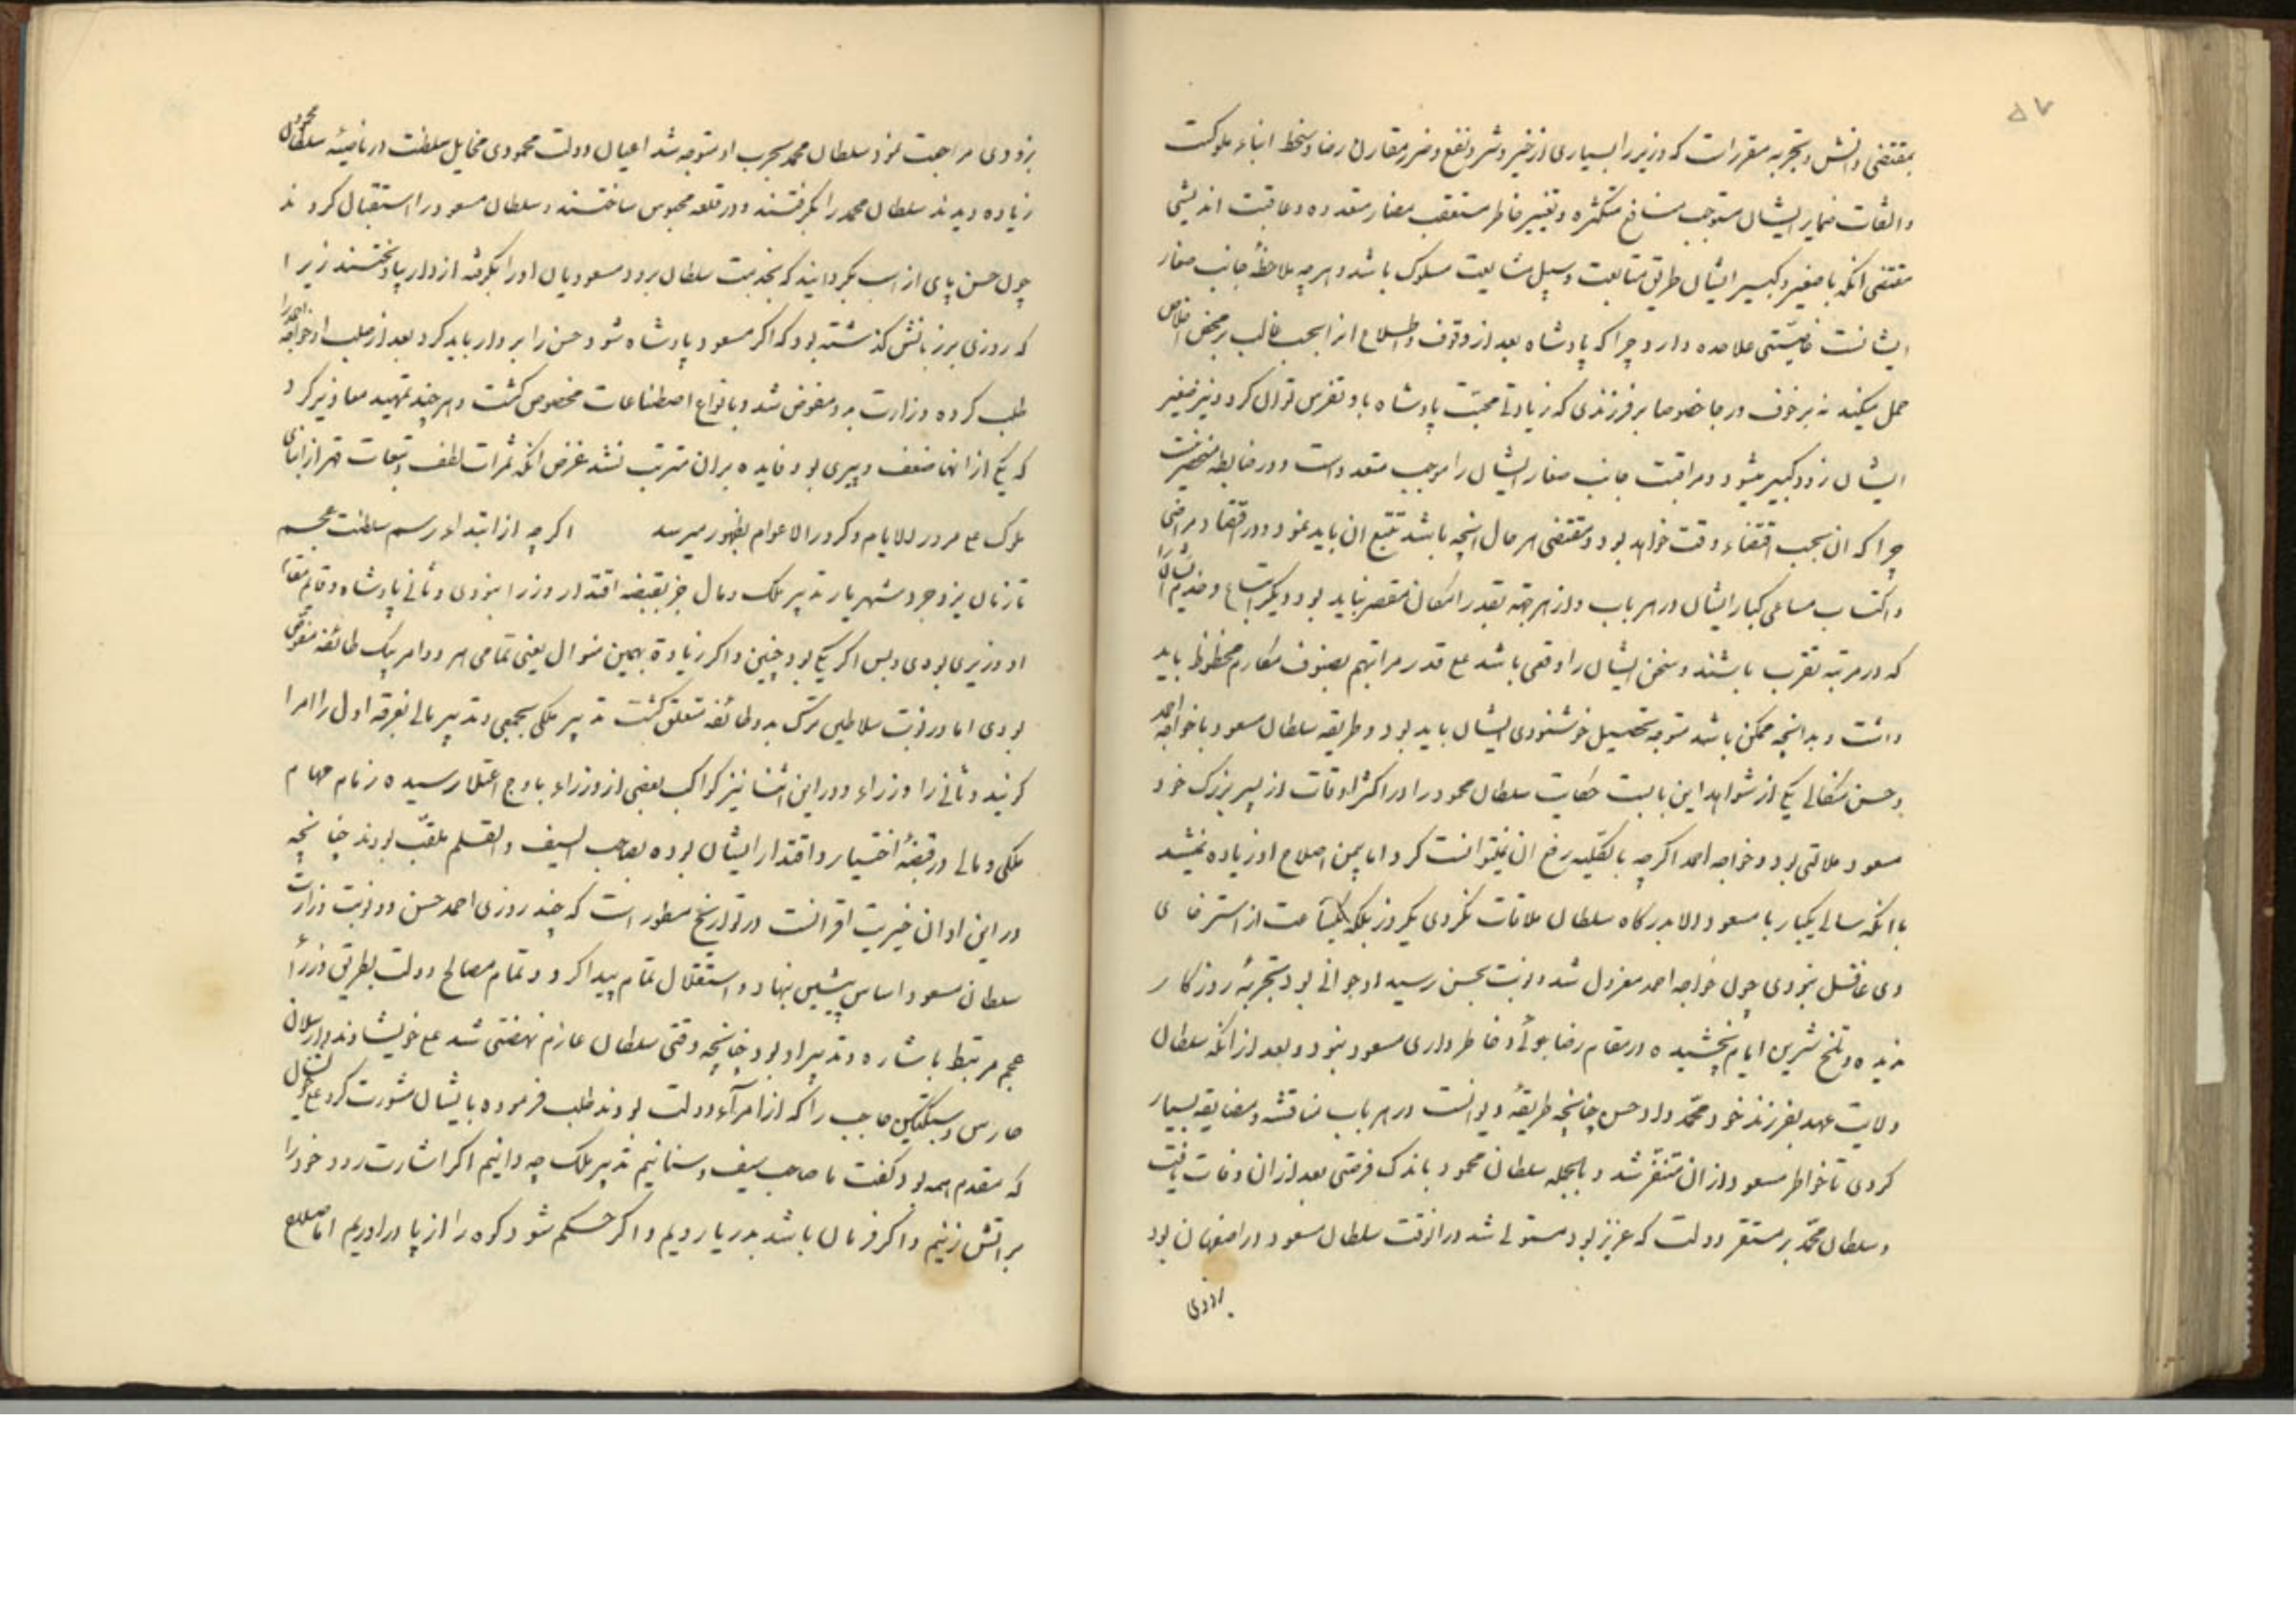 ۵۷
بمقتضی دانش و تجربه مقررات که وزیر را بسیاری از خیر و شر و نفع و ضرر مقارن رضا و سخط ابناء ملوکست
و التفات ضمایر ایشان مستوجب منافع متکثره و تغییر خاطر مستعقب مضار متعدده و عاقبت اندیشی
مقتضی انکه با صغیر و کبیر ایشان طریق متابعت و سبیل مشایعت مسلوک باشد و هر چه ملاحظهٔ جانب صغار
ایشانست خاصیّتی علاحده دارد چرا که پادشاه بعد از وقوف و اطلاع انرا بحسب غالب بر محض اخلاص
حمل میکند نه بر خوف و رجا خصوصا بر فرزندی که زیادتی محبّت پادشاه باو تفرس توان کرد و نیز صغیر
ایشان زود کبیر میشود و مراقبت جانب صغار ایشان را موجب متعدد است و در ضابطه منحصر نیست
چرا که ان بحسب اقتضاء وقت خواهد بود و مقتضی هر حال انچه باشد تتبع ان باید نمود و در اقتفاء مراضی
و اکتساب مساعی کبار ایشان در هر باب و از هر جهة بقدر امکان مقصر نباید بود و دیگر اتباع و خدم ایشانرا
که در مرتبه تقرب باشند و سخن ایشان را وقعی باشد علی قدر مراتبهم بصنوف مکارم محظوظ باید
داشت و بدانچه ممکن باشد متوجه تحصیل خوشنودی ایشان باید بود و طریقه سلطان مسعود با خواجه احمد
و حسن میکالی یکی از شواهد این بابست حکایت سلطان محمود را در اکثر اوقات از پسر بزرک خود
مسعود ملالتی بود و خواجه احمد اکرچه بالکلیه رفع ان نمیتوانست کرد اما بیمن اصلاح او زیاده نمیشد
با انکه سالی یکبار با مسعود الا بدرکاه سلطان ملاقات نکردی یکروز بلکه یکساعت از استرضای
وی غافل نبودی چون خواجه احمد معزول شد و نوبت بحسن رسید او جوانی بود تجربهٔ روزکار
ندیده و تلخ و شیرین ایام نچشیده در مقام رضا جوئی و خاطر داری مسعود نبود و بعد از انکه سلطان
ولایت عهد بفرزند خود محمّد داد حسن چنانچه طریقهٔ دیوانست در هر باب مناقشه و مضایقه بسیار
کردی تا خواطر مسعود از ان متنفر شد و بالجمله سلطان محمود باندک فرصتی بعد از ان وفات یافت
و سلطان محمّد بر مستقر دولت که غزنین بود مستولی شد در انوقت سلطان مسعود در اصفهان بود
بزودی
بزودی مراجعت نمود سلطان محمد بحرب او متوجه شد اعیان دولت محمودی مخایل سلطنت در ناصیهٔ سلطان محمود
زیاده دیدند سلطان محمد را بکرفتند و در قلعه محبوس ساختند و سلطان مسعود را استقبال کردند
چون حسن پای از اسب بکردانید که بخدمت سلطان رود مسعودیان او را بکرفته از دار بیاویختند زیرا
که روزی بر زبانش کذشته بود که اکر مسعود پادشاه شود حسن را بر دار باید کرد بعد از صلب او خواجه احمد را
طلب کرده وزارت بدو مفوض شد و بانواع اصطناعات مخصوص کشت و هر چند تمهید معاذیر کرد
که یکی از انها ضعف و پیری بود فایده بران مترتب نشد غرض انکه ثمرات لطف و تبعات قهر از ابنای
ملوک علی مرور الایام و کرور الاعوام بظهور میرسد اکرچه از ابتداء رسم سلطنت عجم
تا زمان یزدجرد شهریار تدبیر ملک و مال جز بقبضه اقتدار وزرا نبودی و ثانی پادشاه و قایم مقام
او وزیری بودی و بس اکر یکی بود چنین و اکر زیادة بهمین منوال یعنی تمامی هر دو امر بیک طائفه مفوض
بودی اما در نوبت سلاطین ترک بدو طائفه متعلق کشت تدبیر ملکی بجمعی و تدبیر مالی بفرقه اول را امرا
کویند و ثانی را وزراء و در این اثنا نیز کواکب بعضی از وزراء باوج اعتلا رسیده زمام مهام
ملکی و مالی در قبضهٔ اختیار و اقتدار ایشان بوده بصاحب السیف و القلم ملقّب بودند چنانچه
در این اوان خیریت اقرانست در تواریخ مسطور است که چند روزی احمد حسن در نوبت وزارت
سلطان مسعود اساس پیشین نهاد و استقلال تمام پیدا کرد و تمام مصالح دولت بطریق وزرأ
عجم مرتبط باشاره و تدبیر او بود چنانچه وقتی سلطان عازم نهضتی شد علی خویشاوند و ارسلان
حارس و سبکتکین حاجب را که از امرآء دولت بودند طلب فرموده با ایشان مشورت کرد علی خویشان
که مقدم همه بود کفت ما صاحب سیف و سنانیم تدبیر ملک چه دانیم اکر اشارت رود خود را
بر اتش زنیم و اکر فرمان باشد بدریا رویم و اکر حکم شود کوه را از پا در اوریم اما صلاح